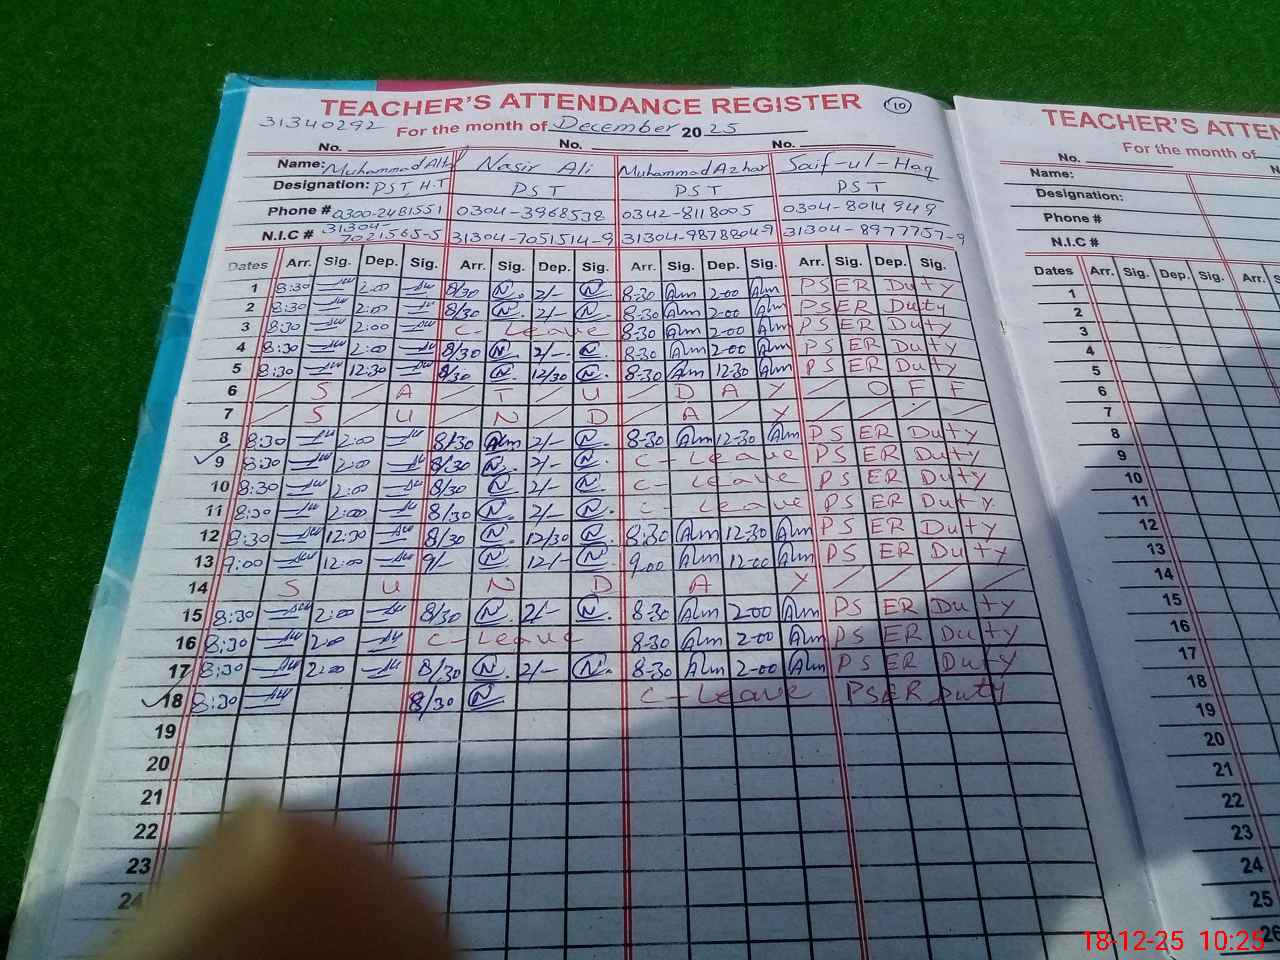 TEACHER'S ATTENDANCE REGISTER 10
31340292 For the month of December 2025
No. No. No.
Name: Muhammad Nasir Ali Muhammad Azhar Saif-ul-Haq
Designation: PST H.T PST PST PST
Phone # 0300-2481551 0304-3968538 0342-8118005 0304-8014949
N.I.C # 31304-7021565-5 31304-7051514-9 31304-9878804-9 31304-8977757-9
Dates Arr. Sig. Dep. Sig. Arr. Sig. Dep. Sig. Arr. Sig. Dep. Sig. Arr. Sig. Dep. Sig.
1 8:30 2:00 8/30 N. 2/- N. 8-30 Alm 2-00 Alm PSER Duty
2 8:30 2:00 8/30 N. 2/- N. 8-30 Alm 2-00 Alm PSER Duty
3 8:30 2:00 C- Leave 8-30 Alm 2-00 Alm PSER Duty
4 8:30 2:00 8/30 N. 2/- N. 8-30 Alm 2-00 Alm PSER Duty
5 8:30 12:30 8/30 N. 12/30 N. 8-30 Alm 12-30 Alm PSER Duty
6 / S / A / T / U / D A Y / O F F
7 / S / U / N / D / A / Y / / / /
8 8:30 2:00 8/30 Alm 2/- N. 8-30 Alm 12-30 Alm PSER Duty
9 8:30 2:00 8/30 N. 2/- N. C- Leave PSER Duty
10 8:30 2:00 8/30 N. 2/- N. C- Leave PSER Duty
11 8:30 2:00 8/30 N. 2/- N. C- Leave PSER Duty
12 8:30 12:30 8/30 N. 12/30 N. 8-30 Alm 12-30 Alm PSER Duty
13 9:00 12:00 9/- N. 12/- N. 9-00 Alm 12-00 Alm PSER Duty
14 S U N D A Y / / / /
15 8:30 2:00 8/30 N. 2/- N. 8-30 Alm 2-00 Alm PSER Duty
16 8:30 2:00 C- Leave 8-30 Alm 2-00 Alm PSER Duty
17 8:30 2:00 8/30 N. 2/- N. 8-30 Alm 2-00 Alm PSER Duty
18 8:30 8/30 N. C- Leave PSER Duty
19
20
21
22
23
TEACHER'S ATTEN
For the month of
No.
Name:
Designation:
Phone #
N.I.C #
Dates Arr. Sig. Dep. Sig. Arr.
1
2
3
4
5
6
7
8
9
10
11
12
13
14
15
16
17
18
19
20
21
22
23
24
25
26
18-12-25 10:25